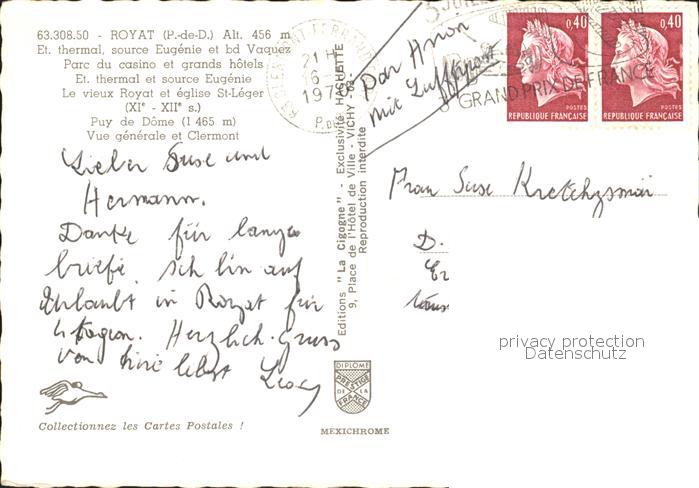 63.308.50 - ROYAT (P.-de-D.) Alt. 456 m
Et. thermal, source Eugénie et bd Vaquez
Parc du casino et grands hôtels
Et. thermal et source Eugénie
Le vieux Royat et église St-Léger
(XI° - XII° s.)
Puy de Dôme (1 465 m)
Vue générale et Clermont
Lieber Suse und
Hermann.
Danke für lange
briefe. Ich bin auf
Urlaubt in Royat für
Herzlich. Gruss
von
Collectionnez les Cartes Postales !
Editions "La Cigogne" - Exclusivité HACHETTE
9, Place de l'Hôtel de Ville - VICHY - 03.
Reproduction interdite
DIPLOME
PRESTIGE
DE LA
FRANCE
MEXICHROME
21 H
16 -
197
P. DE
Par Avion
mit Luftpost
GRAND PRIX DE FRANCE
0,40
POSTES
REPUBLIQUE FRANÇAISE
0,40
POSTES
REPUBLIQUE FRANÇAISE
Frau Suse
D.
privacy protection
Datenschutz